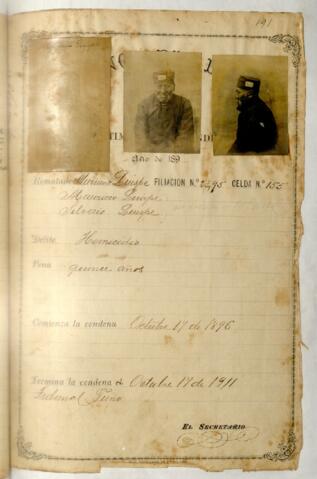 191
Año de 189
Rematado Mariano Quispe FILIACIÓN N.º 2695 CELDA N.º 155
Mauricio Quispe
Silverio Quispe
Delito Homicidio
Pena quince años
Comienza la condena Octubre 17 de 1896
Termina la condena el Octubre 17 de 1911
Tribunal Puno
EL SECRETARIO